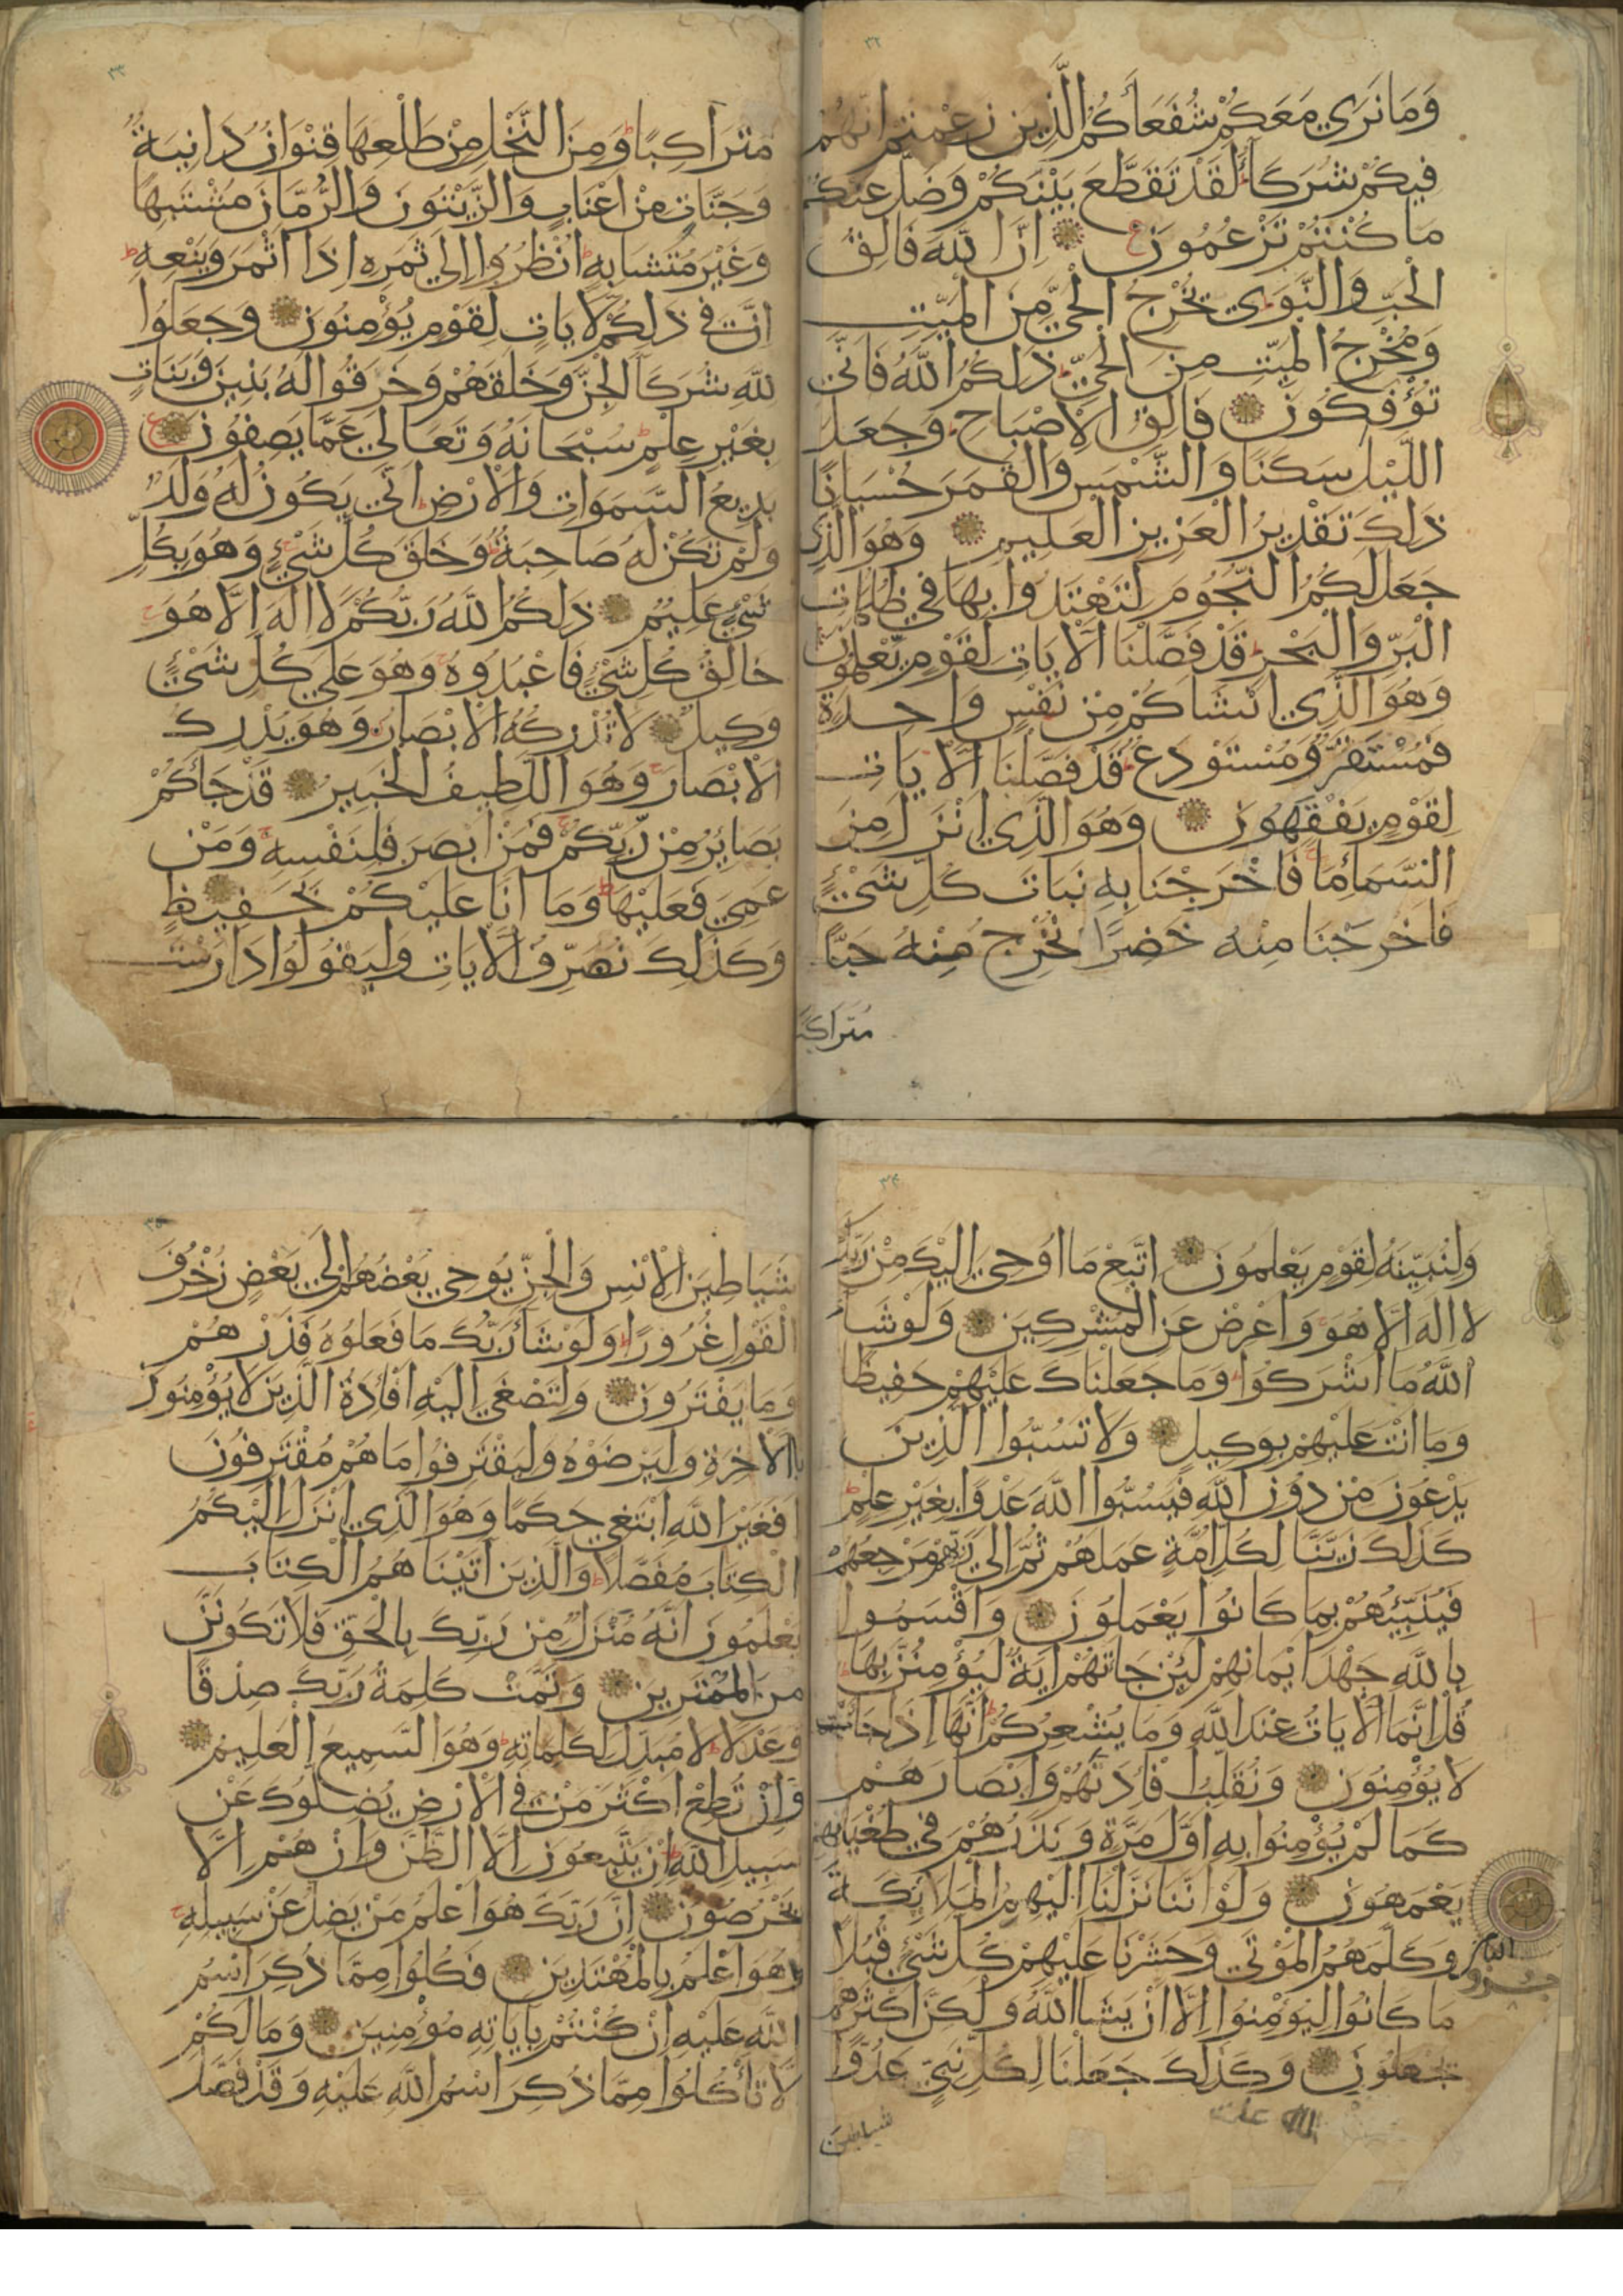 ٣٢
وَمَا نَرَي مَعَكُمْ شُفَعَآءَكُمُ الَّذِينَ زَعَمْتُمْ اَنَّهُمْ
فِيكُمْ شُرَكَآءُ لَقَدْ تَقَطَّعَ بَيْنَكُمْ وَضَلَّ عَنْكُمْ
مَا كُنْتُمْ تَزْعُمُونَ اِنَّ اللَّهَ فَالِقُ
الْحَبِّ وَالنَّوَي يُخْرِجُ الْحَيَّ مِنَ الْمَيِّتِ
وَمُخْرِجُ الْمَيِّتِ مِنَ الْحَيِّ ذَلِكُمُ اللَّهُ فَاَنَّي
تُؤْفَكُونَ فَالِقُ الْاِصْبَاحِ وَجَعَلَ
اللَّيْلَ سَكَنًا وَالشَّمْسَ وَالْقَمَرَ حُسْبَانًا
ذَلِكَ تَقْدِيرُ الْعَزِيزِ الْعَلِيمِ وَهُوَ الَّذِي
جَعَلَ لَكُمُ النُّجُومَ لِتَهْتَدُوا بِهَا فِي ظُلُمَاتِ
الْبَرِّ وَالْبَحْرِ قَدْ فَصَّلْنَا الْآيَاتِ لِقَوْمٍ يَعْلَمُونَ
وَهُوَ الَّذِي اَنْشَاَكُمْ مِنْ نَفْسٍ وَاحِدَةٍ
فَمُسْتَقَرٌّ وَمُسْتَوْدَعٌ قَدْ فَصَّلْنَا الْآيَاتِ
لِقَوْمٍ يَفْقَهُونَ وَهُوَ الَّذِي اَنْزَلَ مِنَ
السَّمَاءِ مَآءً فَاَخْرَجْنَا بِهِ نَبَاتَ كُلِّ شَيْءٍ
فَاَخْرَجْنَا مِنْهُ خَضِرًا نُخْرِجُ مِنْهُ حَبًّا
مُتَرَاكِبًا
٣٣
مُتَرَاكِبًا وَمِنَ النَّخْلِ مِنْ طَلْعِهَا قِنْوَانٌ دَانِيَةٌ
وَجَنَّاتٍ مِنْ اَعْنَابٍ وَالزَّيْتُونَ وَالرُّمَّانَ مُشْتَبِهًا
وَغَيْرَ مُتَشَابِهٍ اُنْظُرُوا اِلَي ثَمَرِهِ اِذَا اَثْمَرَ وَيَنْعِهِ
اِنَّ فِي ذَلِكُمْ لَآيَاتٍ لِقَوْمٍ يُؤْمِنُونَ وَجَعَلُوا
لِلَّهِ شُرَكَآءَ الْجِنَّ وَخَلَقَهُمْ وَخَرَقُوا لَهُ بَنِينَ وَبَنَاتٍ
بِغَيْرِ عِلْمٍ سُبْحَانَهُ وَتَعَالَي عَمَّا يَصِفُونَ
بَدِيعُ السَّمَوَاتِ وَالْاَرْضِ اَنَّي يَكُونُ لَهُ وَلَدٌ
وَلَمْ تَكُنْ لَهُ صَاحِبَةٌ وَخَلَقَ كُلَّ شَيْءٍ وَهُوَ بِكُلِّ
شَيْءٍ عَلِيمٌ ذَلِكُمُ اللَّهُ رَبُّكُمْ لَا اِلَهَ اِلَّا هُوَ
خَالِقُ كُلِّ شَيْءٍ فَاعْبُدُوهُ وَهُوَ عَلَي كُلِّ شَيْءٍ
وَكِيلٌ لَا تُدْرِكُهُ الْاَبْصَارُ وَهُوَ يُدْرِكُ
الْاَبْصَارَ وَهُوَ اللَّطِيفُ الْخَبِيرُ قَدْ جَاءَكُمْ
بَصَايِرُ مِنْ رَبِّكُمْ فَمَنْ اَبْصَرَ فَلِنَفْسِهِ وَمَنْ
عَمِيَ فَعَلَيْهَا وَمَا اَنَا عَلَيْكُمْ بِحَفِيظٍ
وَكَذَلِكَ نُصَرِّفُ الْآيَاتِ وَلِيَقُولُوا دَارَسْتَ
٣٤
وَلِنُبَيِّنَهُ لِقَوْمٍ يَعْلَمُونَ اِتَّبِعْ مَا اُوحِيَ اِلَيْكَ مِنْ رَبِّكَ
لَا اِلَهَ اِلَّا هُوَ وَاَعْرِضْ عَنِ الْمُشْرِكِينَ وَلَوْ شَآءَ
اللَّهُ مَا اَشْرَكُوا وَمَا جَعَلْنَاكَ عَلَيْهِمْ حَفِيظًا
وَمَا اَنْتَ عَلَيْهِمْ بِوَكِيلٍ وَلَا تَسُبُّوا الَّذِينَ
يَدْعُونَ مِنْ دُونِ اللَّهِ فَيَسُبُّوا اللَّهَ عَدْوًا بِغَيْرِ عِلْمٍ
كَذَلِكَ زَيَّنَّا لِكُلِّ اُمَّةٍ عَمَلَهُمْ ثُمَّ اِلَي رَبِّهِمْ مَرْجِعُهُمْ
فَيُنَبِّئُهُمْ بِمَا كَانُوا يَعْمَلُونَ وَاَقْسَمُوا
بِاللَّهِ جَهْدَ اَيْمَانِهِمْ لَئِنْ جَاءَتْهُمْ اَيَةٌ لَيُؤْمِنُنَّ بِهَا
قُلْ اِنَّمَا الْآيَاتُ عِنْدَ اللَّهِ وَمَا يُشْعِرُكُمْ اَنَّهَا اِذَا جَاءَتْ
لَا يُؤْمِنُونَ وَنُقَلِّبُ اَفْئِدَتَهُمْ وَاَبْصَارَهُمْ
كَمَا لَمْ يُؤْمِنُوا بِهِ اَوَّلَ مَرَّةٍ وَنَذَرُهُمْ فِي طُغْيَانِهِمْ
يَعْمَهُونَ وَلَوْ اَنَّنَا نَزَّلْنَا اِلَيْهِمُ الْمَلَائِكَةَ
وَكَلَّمَهُمُ الْمَوْتَي وَحَشَرْنَا عَلَيْهِمْ كُلَّ شَيْءٍ قُبُلًا
مَا كَانُوا لِيُؤْمِنُوا اِلَّا اَنْ يَشَآءَ اللَّهُ وَلَكِنَّ اَكْثَرَهُمْ
يَجْهَلُونَ وَكَذَلِكَ جَعَلْنَا لِكُلِّ نَبِيٍّ عَدُوًّا
شياطين
٣٥
شَيَاطِينَ الْاِنْسِ وَالْجِنِّ يُوحِي بَعْضُهُمْ اِلَي بَعْضٍ زُخْرُفَ
الْقَوْلِ غُرُورًا وَلَوْ شَآءَ رَبُّكَ مَا فَعَلُوهُ فَذَرْهُمْ
وَمَا يَفْتَرُونَ وَلِتَصْغَي اِلَيْهِ اَفْئِدَةُ الَّذِينَ لَا يُؤْمِنُونَ
بِالْآخِرَةِ وَلِيَرْضَوْهُ وَلِيَقْتَرِفُوا مَا هُمْ مُقْتَرِفُونَ
اَفَغَيْرَ اللَّهِ اَبْتَغِي حَكَمًا وَهُوَ الَّذِي اَنْزَلَ اِلَيْكُمُ
الْكِتَابَ مُفَصَّلًا وَالَّذِينَ اَتَيْنَاهُمُ الْكِتَابَ
يَعْلَمُونَ اَنَّهُ مُنْزَلٌ مِنْ رَبِّكَ بِالْحَقِّ فَلَا تَكُونَنَّ
مِنَ الْمُمْتَرِينَ وَتَمَّتْ كَلِمَةُ رَبِّكَ صِدْقًا
وَعَدْلًا لَا مُبَدِّلَ لِكَلِمَاتِهِ وَهُوَ السَّمِيعُ الْعَلِيمُ
وَاِنْ تُطِعْ اَكْثَرَ مَنْ فِي الْاَرْضِ يُضِلُّوكَ عَنْ
سَبِيلِ اللَّهِ اِنْ يَتَّبِعُونَ اِلَّا الظَّنَّ وَاِنْ هُمْ اِلَّا
يَخْرُصُونَ اِنَّ رَبَّكَ هُوَ اَعْلَمُ مَنْ يَضِلُّ عَنْ سَبِيلِهِ
وَهُوَ اَعْلَمُ بِالْمُهْتَدِينَ فَكُلُوا مِمَّا ذُكِرَ اسْمُ
اللَّهِ عَلَيْهِ اِنْ كُنْتُمْ بِآيَاتِهِ مُؤْمِنِينَ وَمَا لَكُمْ
لَا تَاْكُلُوا مِمَّا ذُكِرَ اسْمُ اللَّهِ عَلَيْهِ وَقَدْ فَصَّلَ